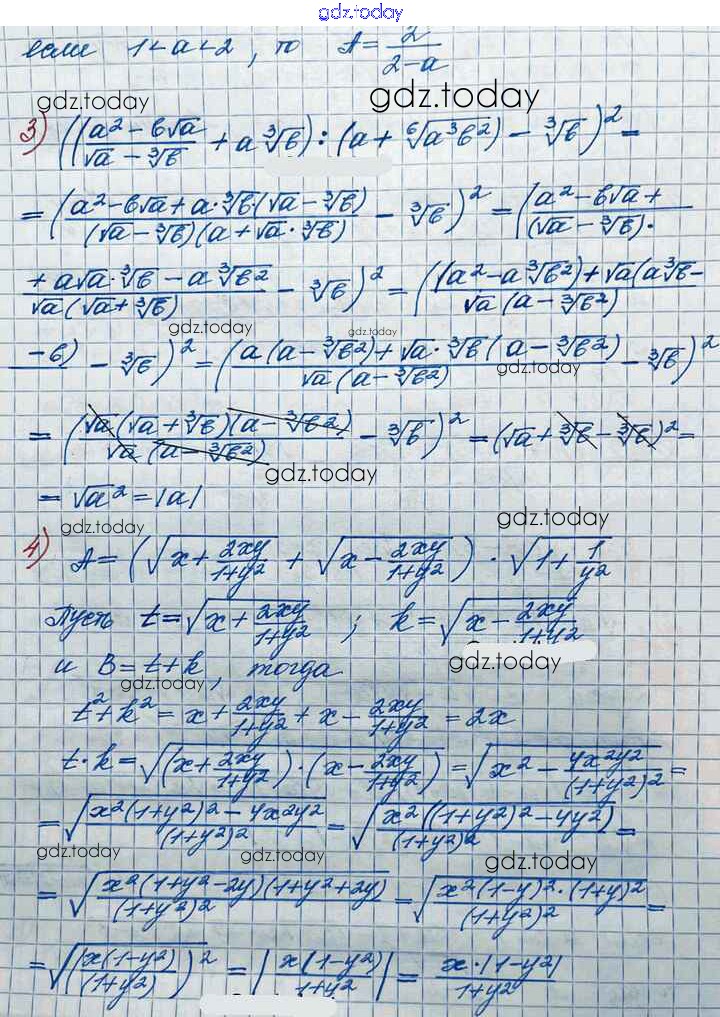 gdz.today
если 1<a<2, то A = 2/(2-a)
gdz.today gdz.today
3) ((a²-b√a)/(√a-∛b) + a∛b) : (a + ⁶√(a³b²)) - ∛b)² =
= ((a²-b√a+a·∛b·(√a-∛b))/((√a-∛b)(a+√a·∛b)) - ∛b)² = ((a²-b√a+)/((√a-∛b)·
(+a√a·∛b - a∛b²)/(√a(√a+∛b)) - ∛b)² = (((a²-a∛b²)+√a(a∛b-)/(√a(a-∛b²))
gdz.today gdz.today
-b) - ∛b)² = ((a(a-∛b²)+√a·∛b(a-∛b²))/(√a(a-∛b²)) - ∛b)²
gdz.today
= ((√a(√a+∛b)(a-∛b²))/(√a(a-∛b²)) - ∛b)² = (√a+∛b-∛b)² =
gdz.today
= √a² = |a|
gdz.today gdz.today
4) A = (√(x+2xy/(1+y²)) + √(x-2xy/(1+y²))) · √(1+1/y²)
Пусть t = √(x+2xy/(1+y²)) ; k = √(x-2xy/(1+y²))
и B = t+k, тогда
gdz.today gdz.today
t²+k² = x+2xy/(1+y²) + x-2xy/(1+y²) = 2x
t·k = √((x+2xy/(1+y²))·(x-2xy/(1+y²))) = √(x²-4x²y²/(1+y²)²) =
= √((x²(1+y²)²-4x²y²)/(1+y²)²) = √((x²((1+y²)²-4y²))/(1+y²)²) =
gdz.today gdz.today gdz.today
= √((x²(1+y²-2y)(1+y²+2y))/(1+y²)²) = √((x²(1-y)²·(1+y)²)/(1+y²)²) =
= √((x(1-y²)/(1+y²))²) = |x(1-y²)/(1+y²)| = x·|1-y²|/(1+y²)